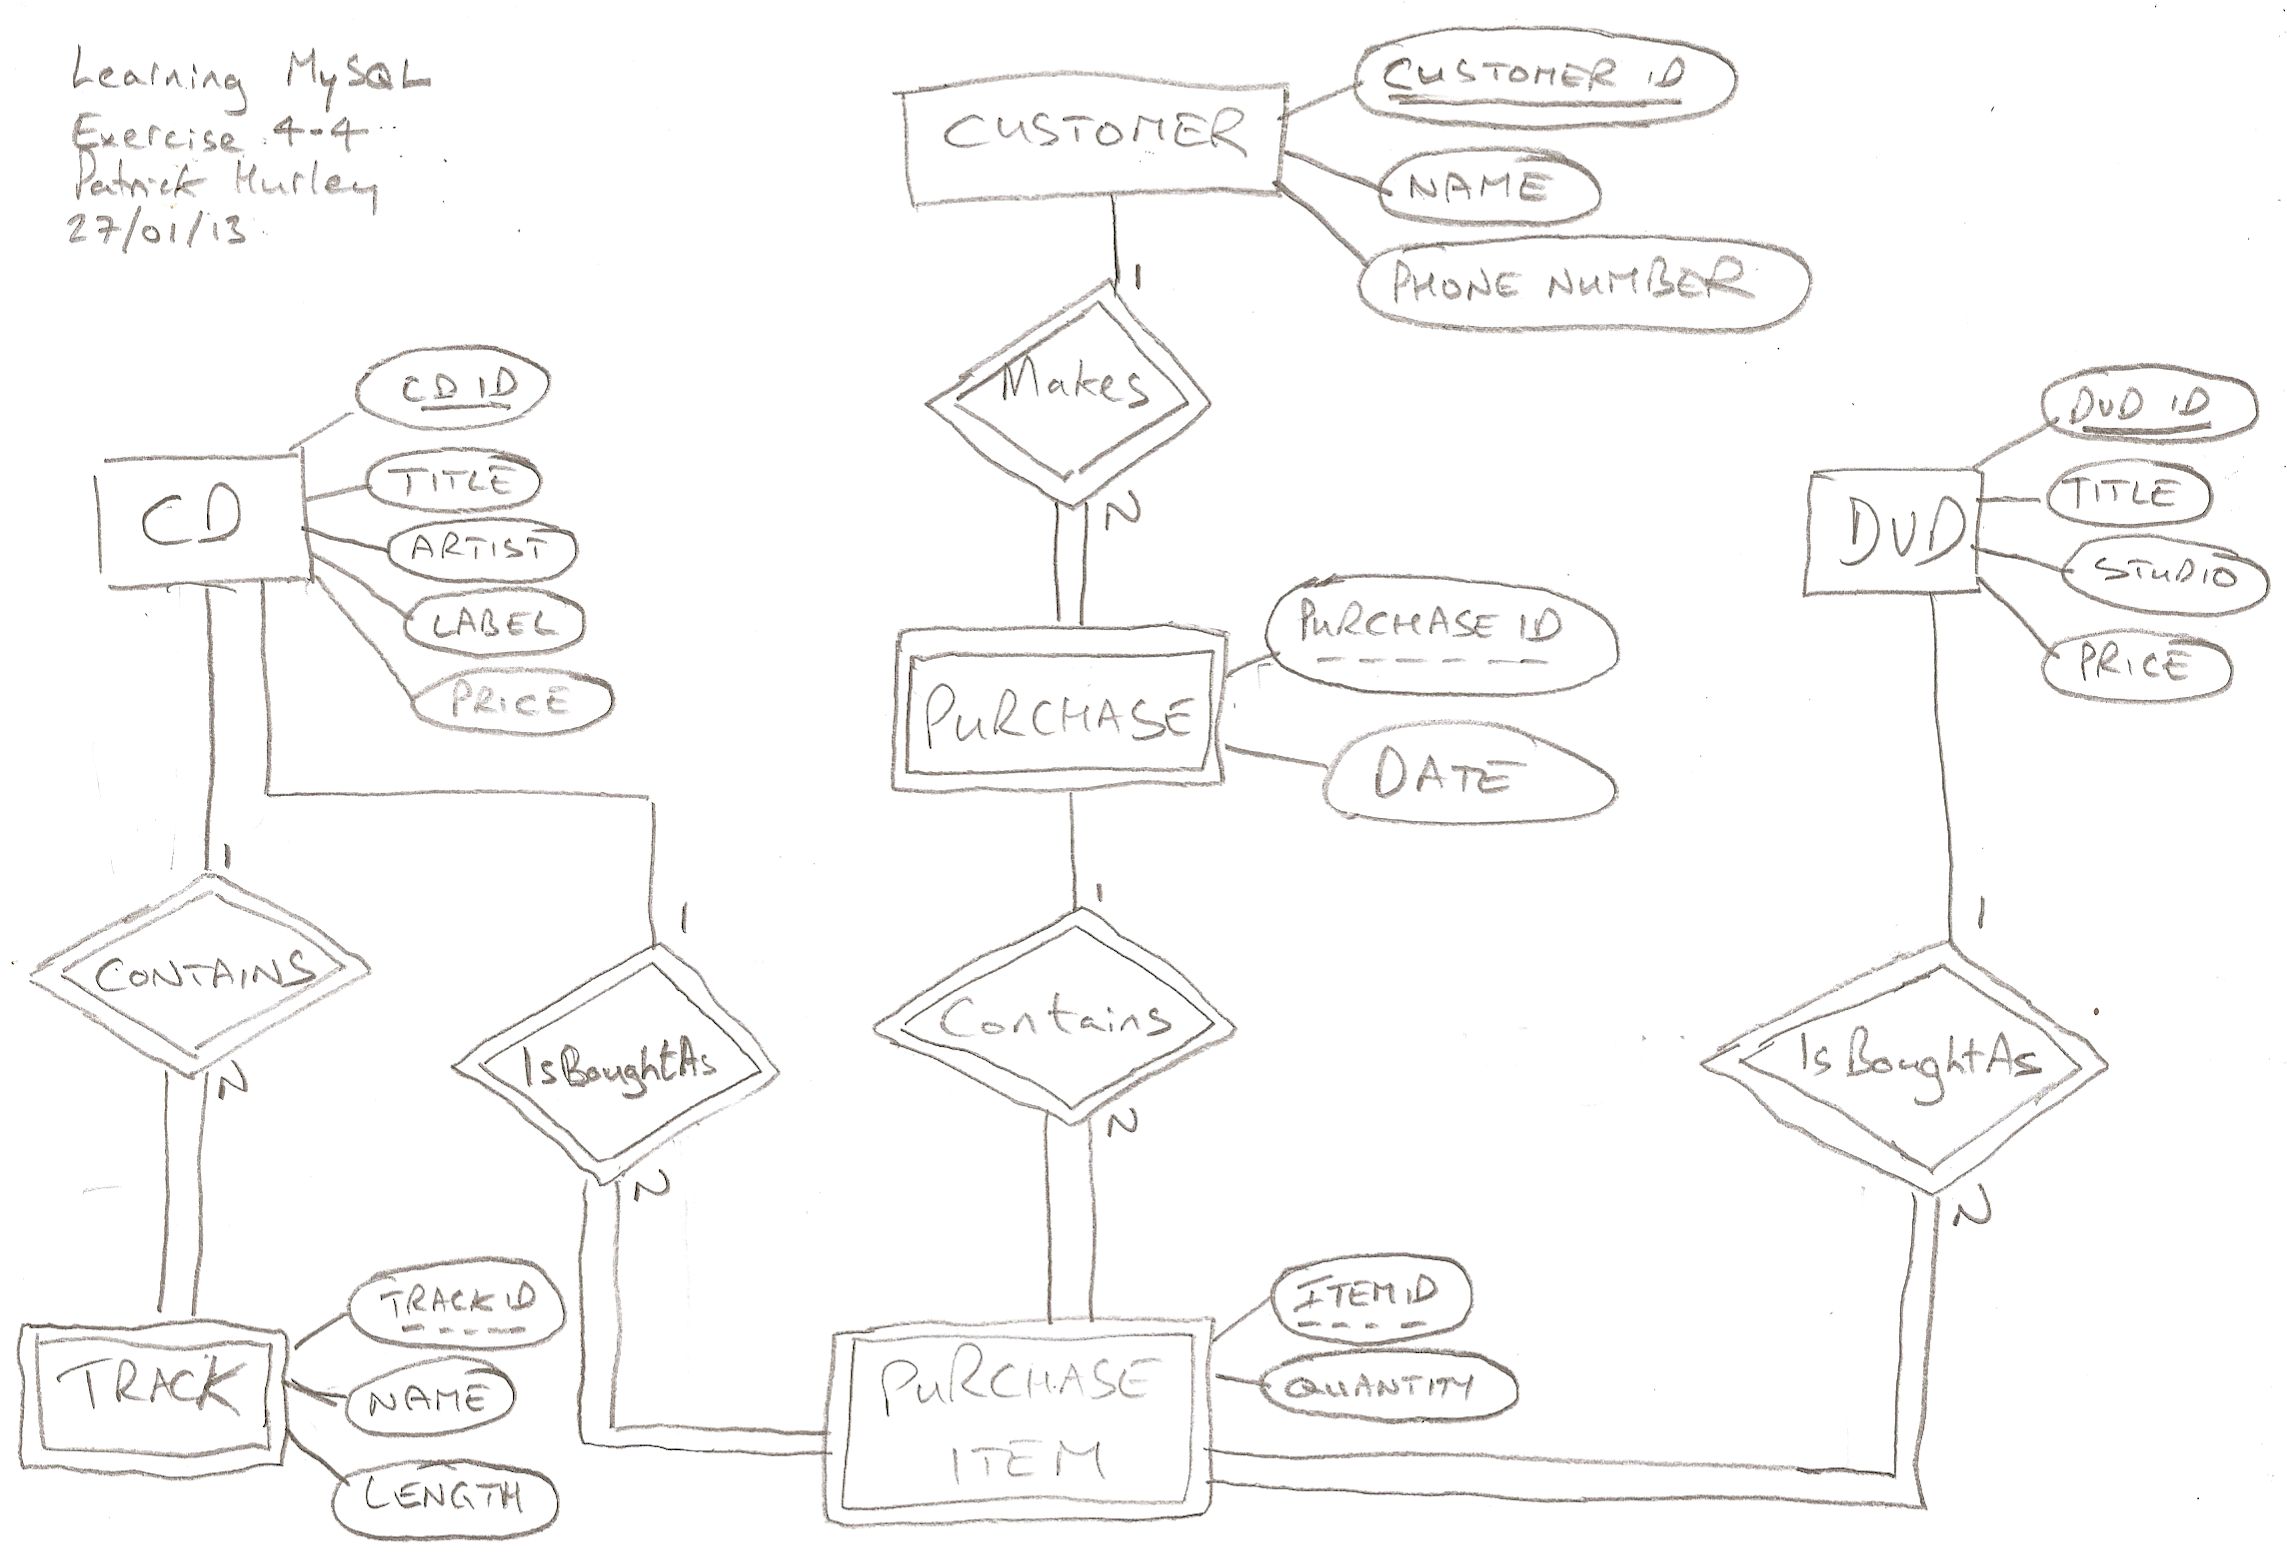 Learning MySQL
Exercise 4-4
Patrick Hurley
27/01/13
CUSTOMER
CUSTOMER ID
NAME
PHONE NUMBER
1
Makes
N
CD
CD ID
TITLE
ARTIST
LABEL
PRICE
DVD
DVD ID
TITLE
STUDIO
PRICE
PURCHASE
PURCHASE ID
DATE
1
CONTAINS
N
1
IsBoughtAs
N
1
Contains
N
1
IsBoughtAs
N
TRACK
TRACK ID
NAME
LENGTH
PURCHASE
ITEM
ITEM ID
QUANTITY